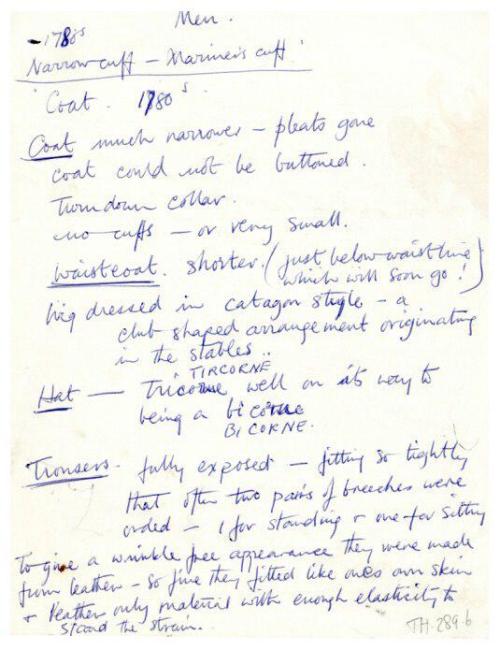 Men.
- 1780s
Narrow cuff - Mariner's cuff
Coat. 1780s.
Coat much narrower - pleats gone
coat could not be buttoned.
Turn down collar.
no cuffs - or very small.
Waistcoat. shorter. (just below waistline
which will soon go!)
Wig dressed in catagon style - a
club shaped arrangement originating
in the stables..
TIRCORNE
Hat - Tricorne well on its way to
being a bicorne
BICORNE.
Trousers. fully exposed - fitting so tightly
that often two pairs of breeches were
orded - 1 for standing + one for sitting
To give a wrinkle free appearance they were made
from leather - so fine they fitted like ones own skin
+ leather only material with enough elasticity to
stand the strain.
TH-289-6